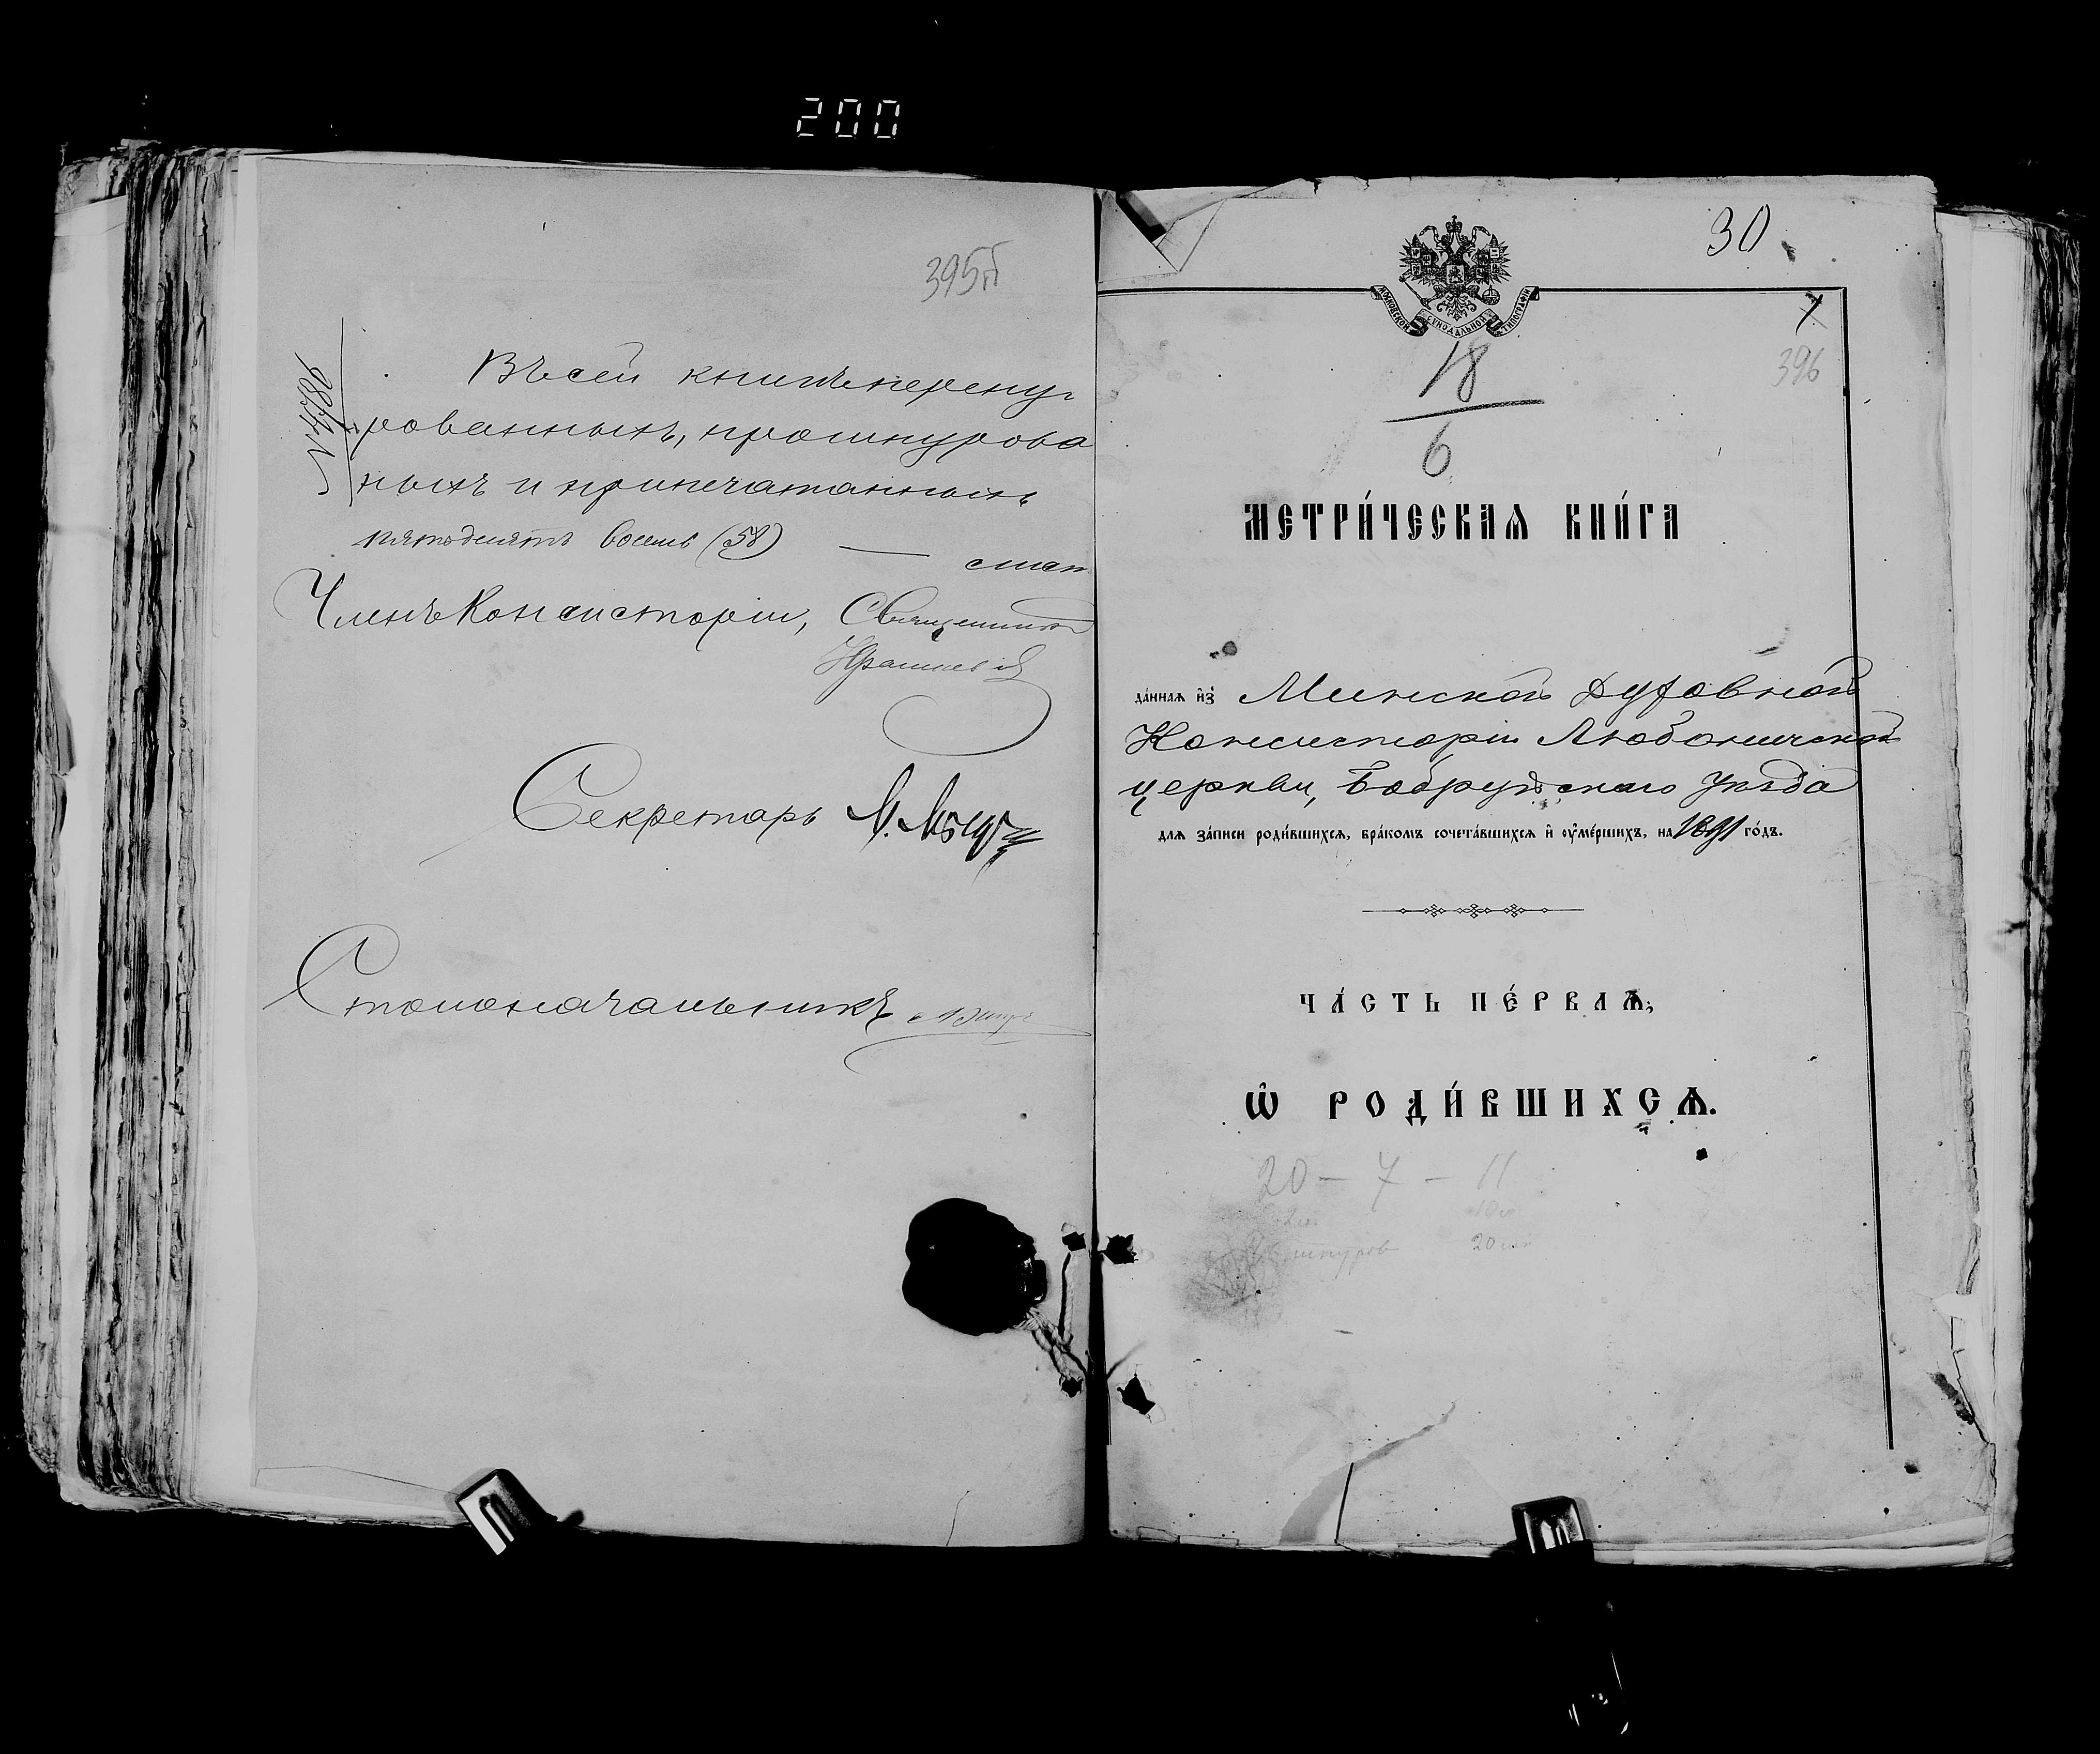 200
395об
№ 4786
Въ сей книгѣ перену-
рованныхъ, прошнурова
ныхъ и припечатанныхъ
пятьдесятъ восемь (58) — лист
Членъ Консисторіи, Священникъ
Секретарь
Столоначальникъ
30
МОСКОВСКОЙ СѴНОДАЛЬНОЙ ТИПОГРАФІИ
7
396
18
6
МЕТРИ́ЧЕСКАѦ КНИ́ГА
да́ннаѧ и҆з̾ Минской Духовной
Консисторіи Любоничской
церкви, Бобруйскаго уѣзда
длѧ за́писи роди́вшихсѧ, бра́комъ сочета́вшихсѧ и҆ ᲂу҆ме́ршихъ, на 1891 го́дъ.
ЧА́СТЬ ПЕ́РВАѦ,
Ѡ҆ РОДИ́ВШИХСѦ.
20 – 7 – 11
шнуров 20